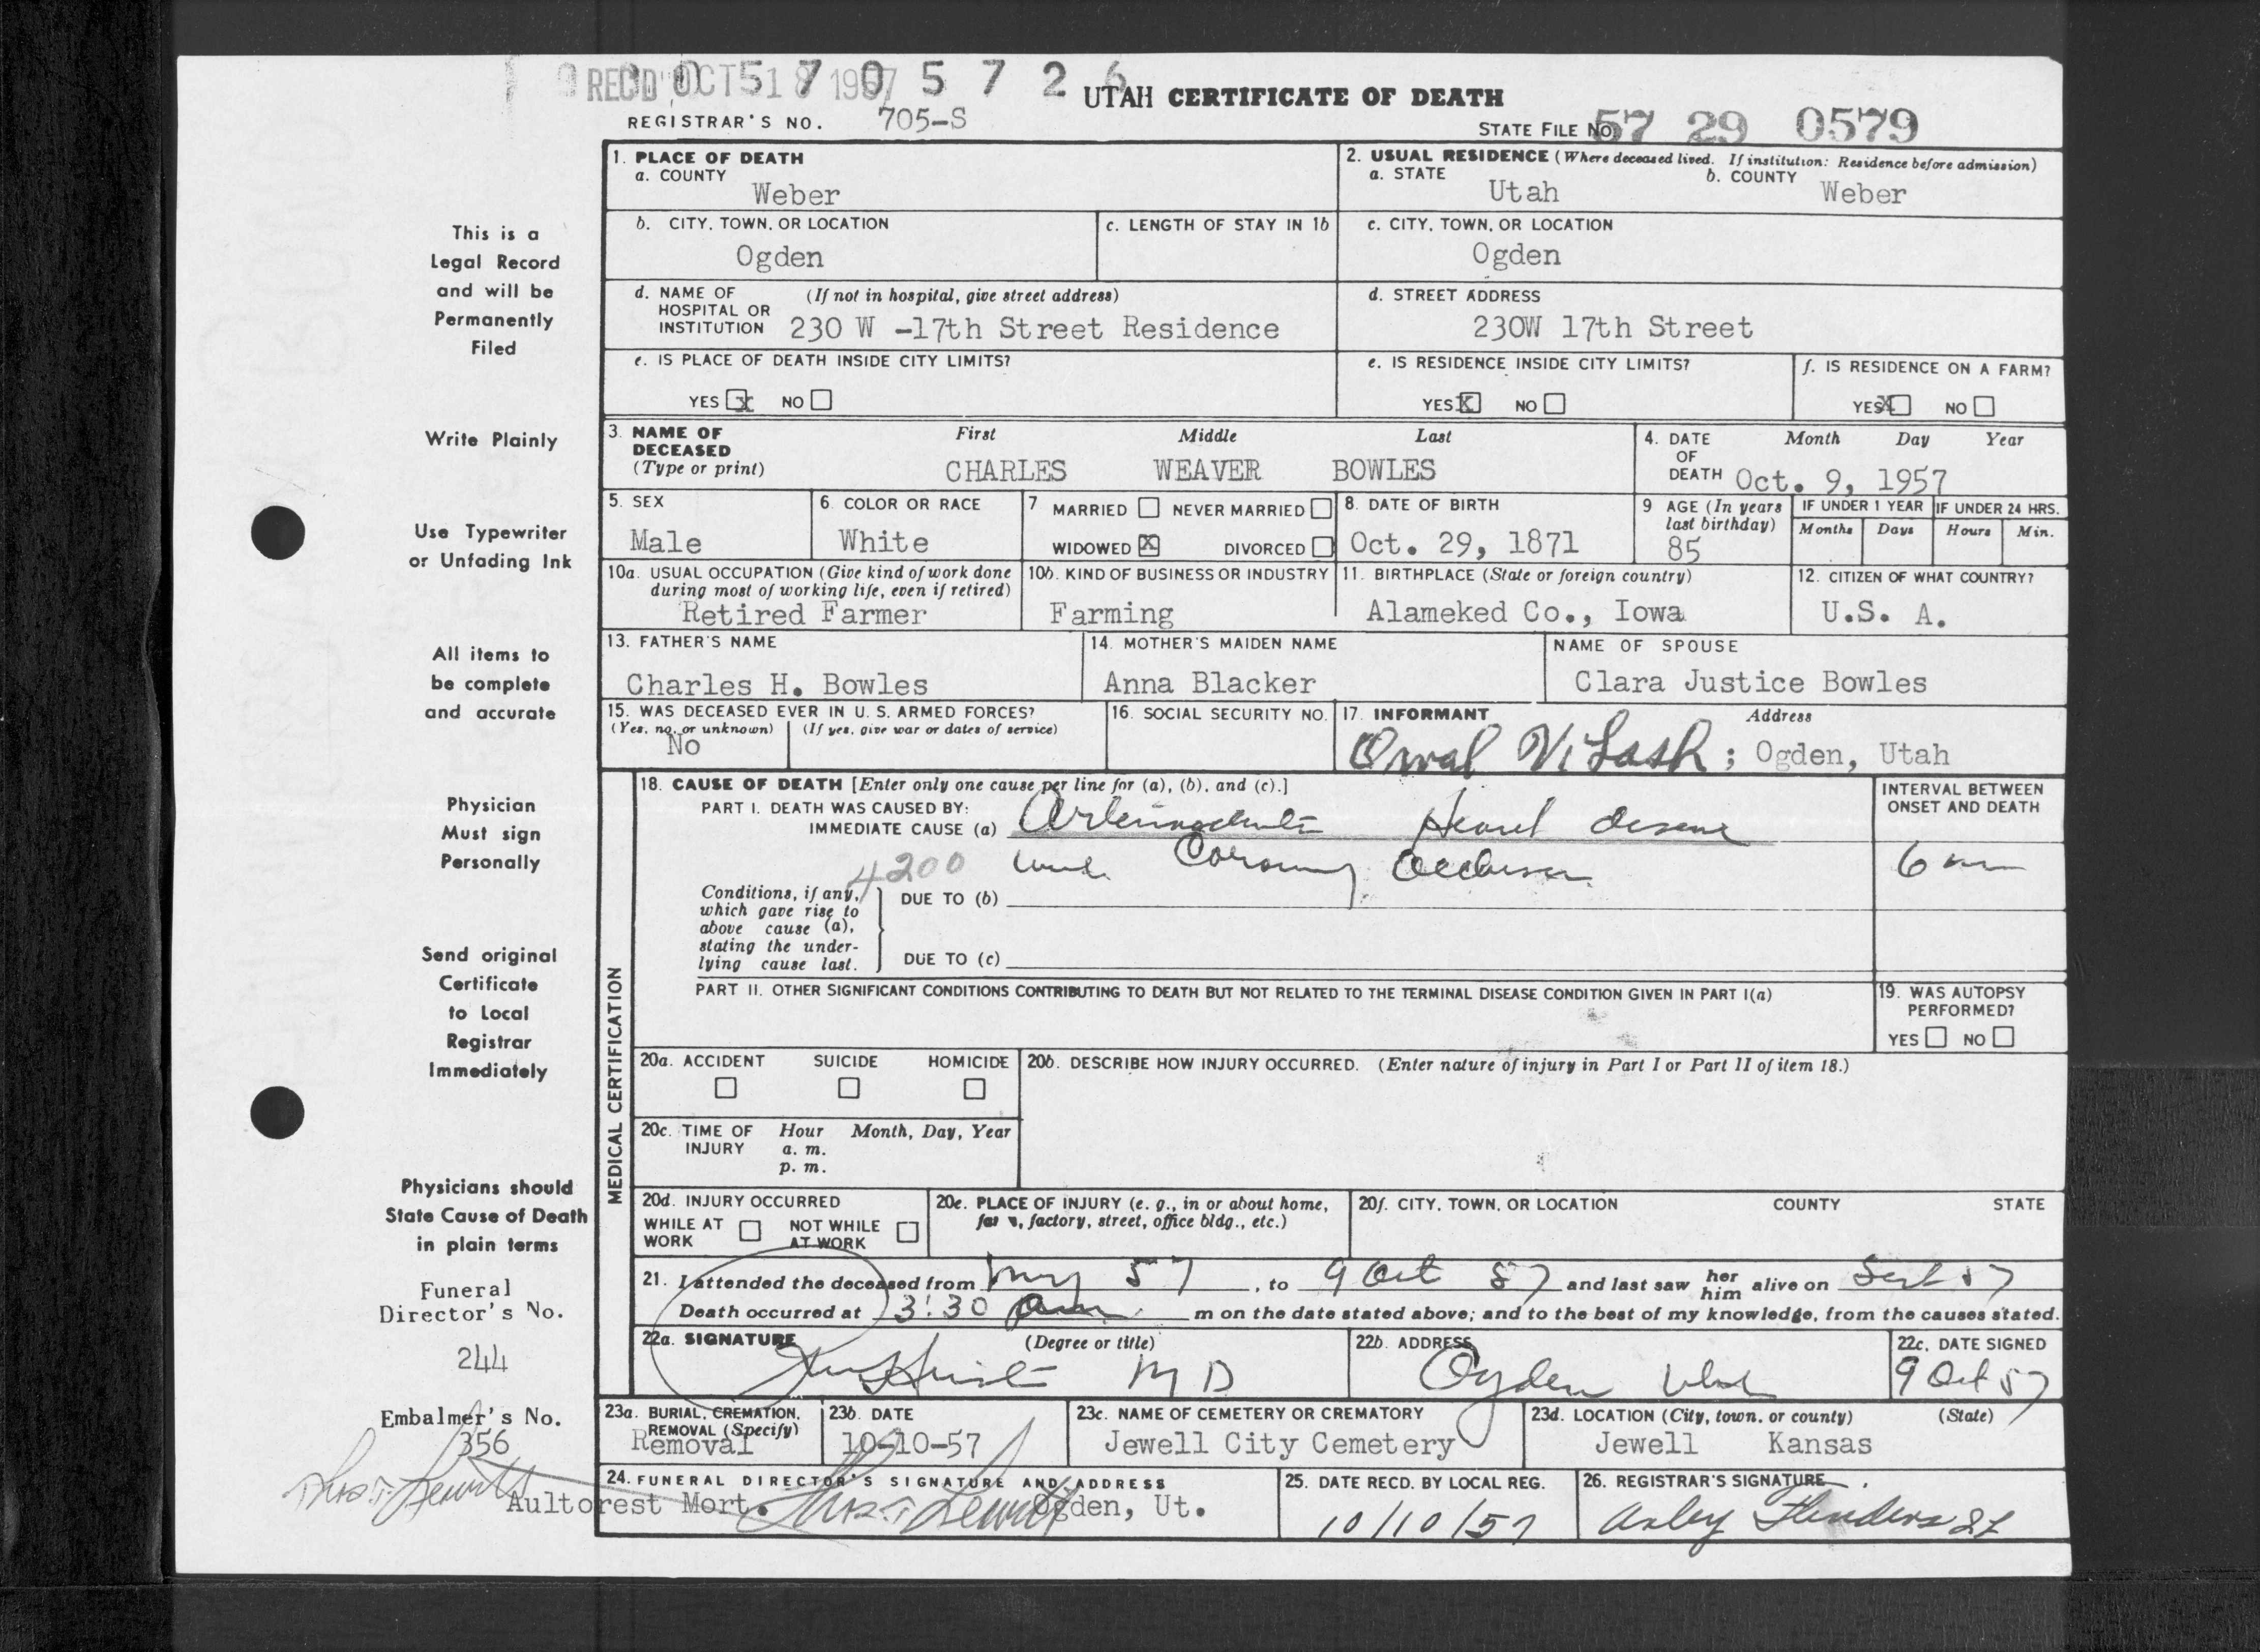 REC'D OCT 18 1957
57 0 5 7 2 6
UTAH CERTIFICATE OF DEATH
REGISTRAR'S NO. 705-S
STATE FILE NO. 57 29 0579
This is a
Legal Record
and will be
Permanently
Filed
Write Plainly
Use Typewriter
or Unfading Ink
All items to
be complete
and accurate
Physician
Must sign
Personally
Send original
Certificate
to Local
Registrar
Immediately
Physicians should
State Cause of Death
in plain terms
Funeral
Director's No.
244
Embalmer's No.
356
1. PLACE OF DEATH
a. COUNTY
Weber
2. USUAL RESIDENCE (Where deceased lived. If institution: Residence before admission)
a. STATE Utah b. COUNTY Weber
b. CITY, TOWN, OR LOCATION
Ogden
c. LENGTH OF STAY IN 1b
c. CITY, TOWN, OR LOCATION
Ogden
d. NAME OF (If not in hospital, give street address)
HOSPITAL OR
INSTITUTION 230 W -17th Street Residence
d. STREET ADDRESS
230W 17th Street
e. IS PLACE OF DEATH INSIDE CITY LIMITS?
YES X NO
e. IS RESIDENCE INSIDE CITY LIMITS?
YES X NO
f. IS RESIDENCE ON A FARM?
YES X NO
3. NAME OF DECEASED (Type or print)
First Middle Last
CHARLES WEAVER BOWLES
4. DATE OF DEATH Month Day Year
Oct. 9, 1957
5. SEX
Male
6. COLOR OR RACE
White
7 MARRIED NEVER MARRIED
WIDOWED X DIVORCED
8. DATE OF BIRTH
Oct. 29, 1871
9 AGE (In years last birthday)
85
IF UNDER 1 YEAR IF UNDER 24 HRS.
Months Days Hours Min.
10a. USUAL OCCUPATION (Give kind of work done
during most of working life, even if retired)
Retired Farmer
10b. KIND OF BUSINESS OR INDUSTRY
Farming
11. BIRTHPLACE (State or foreign country)
Alameked Co., Iowa
12. CITIZEN OF WHAT COUNTRY?
U.S. A.
13. FATHER'S NAME
Charles H. Bowles
14. MOTHER'S MAIDEN NAME
Anna Blacker
NAME OF SPOUSE
Clara Justice Bowles
15. WAS DECEASED EVER IN U. S. ARMED FORCES?
(Yes, no, or unknown) (If yes, give war or dates of service)
No
16. SOCIAL SECURITY NO.
17. INFORMANT Address
Orval V. Lash; Ogden, Utah
MEDICAL CERTIFICATION
18. CAUSE OF DEATH [Enter only one cause per line for (a), (b), and (c).]
INTERVAL BETWEEN
ONSET AND DEATH
PART I. DEATH WAS CAUSED BY:
IMMEDIATE CAUSE (a) Heart disease
4200 Coronary Occlusion
6
Conditions, if any,
which gave rise to
above cause (a),
stating the under-
lying cause last.
DUE TO (b)
DUE TO (c)
PART II. OTHER SIGNIFICANT CONDITIONS CONTRIBUTING TO DEATH BUT NOT RELATED TO THE TERMINAL DISEASE CONDITION GIVEN IN PART I(a)
19. WAS AUTOPSY
PERFORMED?
YES NO
20a. ACCIDENT SUICIDE HOMICIDE
20b. DESCRIBE HOW INJURY OCCURRED. (Enter nature of injury in Part I or Part II of item 18.)
20c. TIME OF INJURY Hour Month, Day, Year
a. m.
p. m.
20d. INJURY OCCURRED
WHILE AT WORK NOT WHILE AT WORK
20e. PLACE OF INJURY (e. g., in or about home,
factory, street, office bldg., etc.)
20f. CITY, TOWN, OR LOCATION COUNTY STATE
21. I attended the deceased from 57, to 9 Oct 57 and last saw her him alive on Sept 57
Death occurred at 3:30 am m on the date stated above; and to the best of my knowledge, from the causes stated.
22a. SIGNATURE (Degree or title)
M D
22b. ADDRESS
Ogden Utah
22c. DATE SIGNED
9 Oct 57
23a. BURIAL, CREMATION,
REMOVAL (Specify)
Removal
23b. DATE
10-10-57
23c. NAME OF CEMETERY OR CREMATORY
Jewell City Cemetery
23d. LOCATION (City, town, or county) (State)
Jewell Kansas
24. FUNERAL DIRECTOR'S SIGNATURE AND ADDRESS
Aultorest Mort. Ogden, Ut.
25. DATE RECD. BY LOCAL REG.
10/10/57
26. REGISTRAR'S SIGNATURE